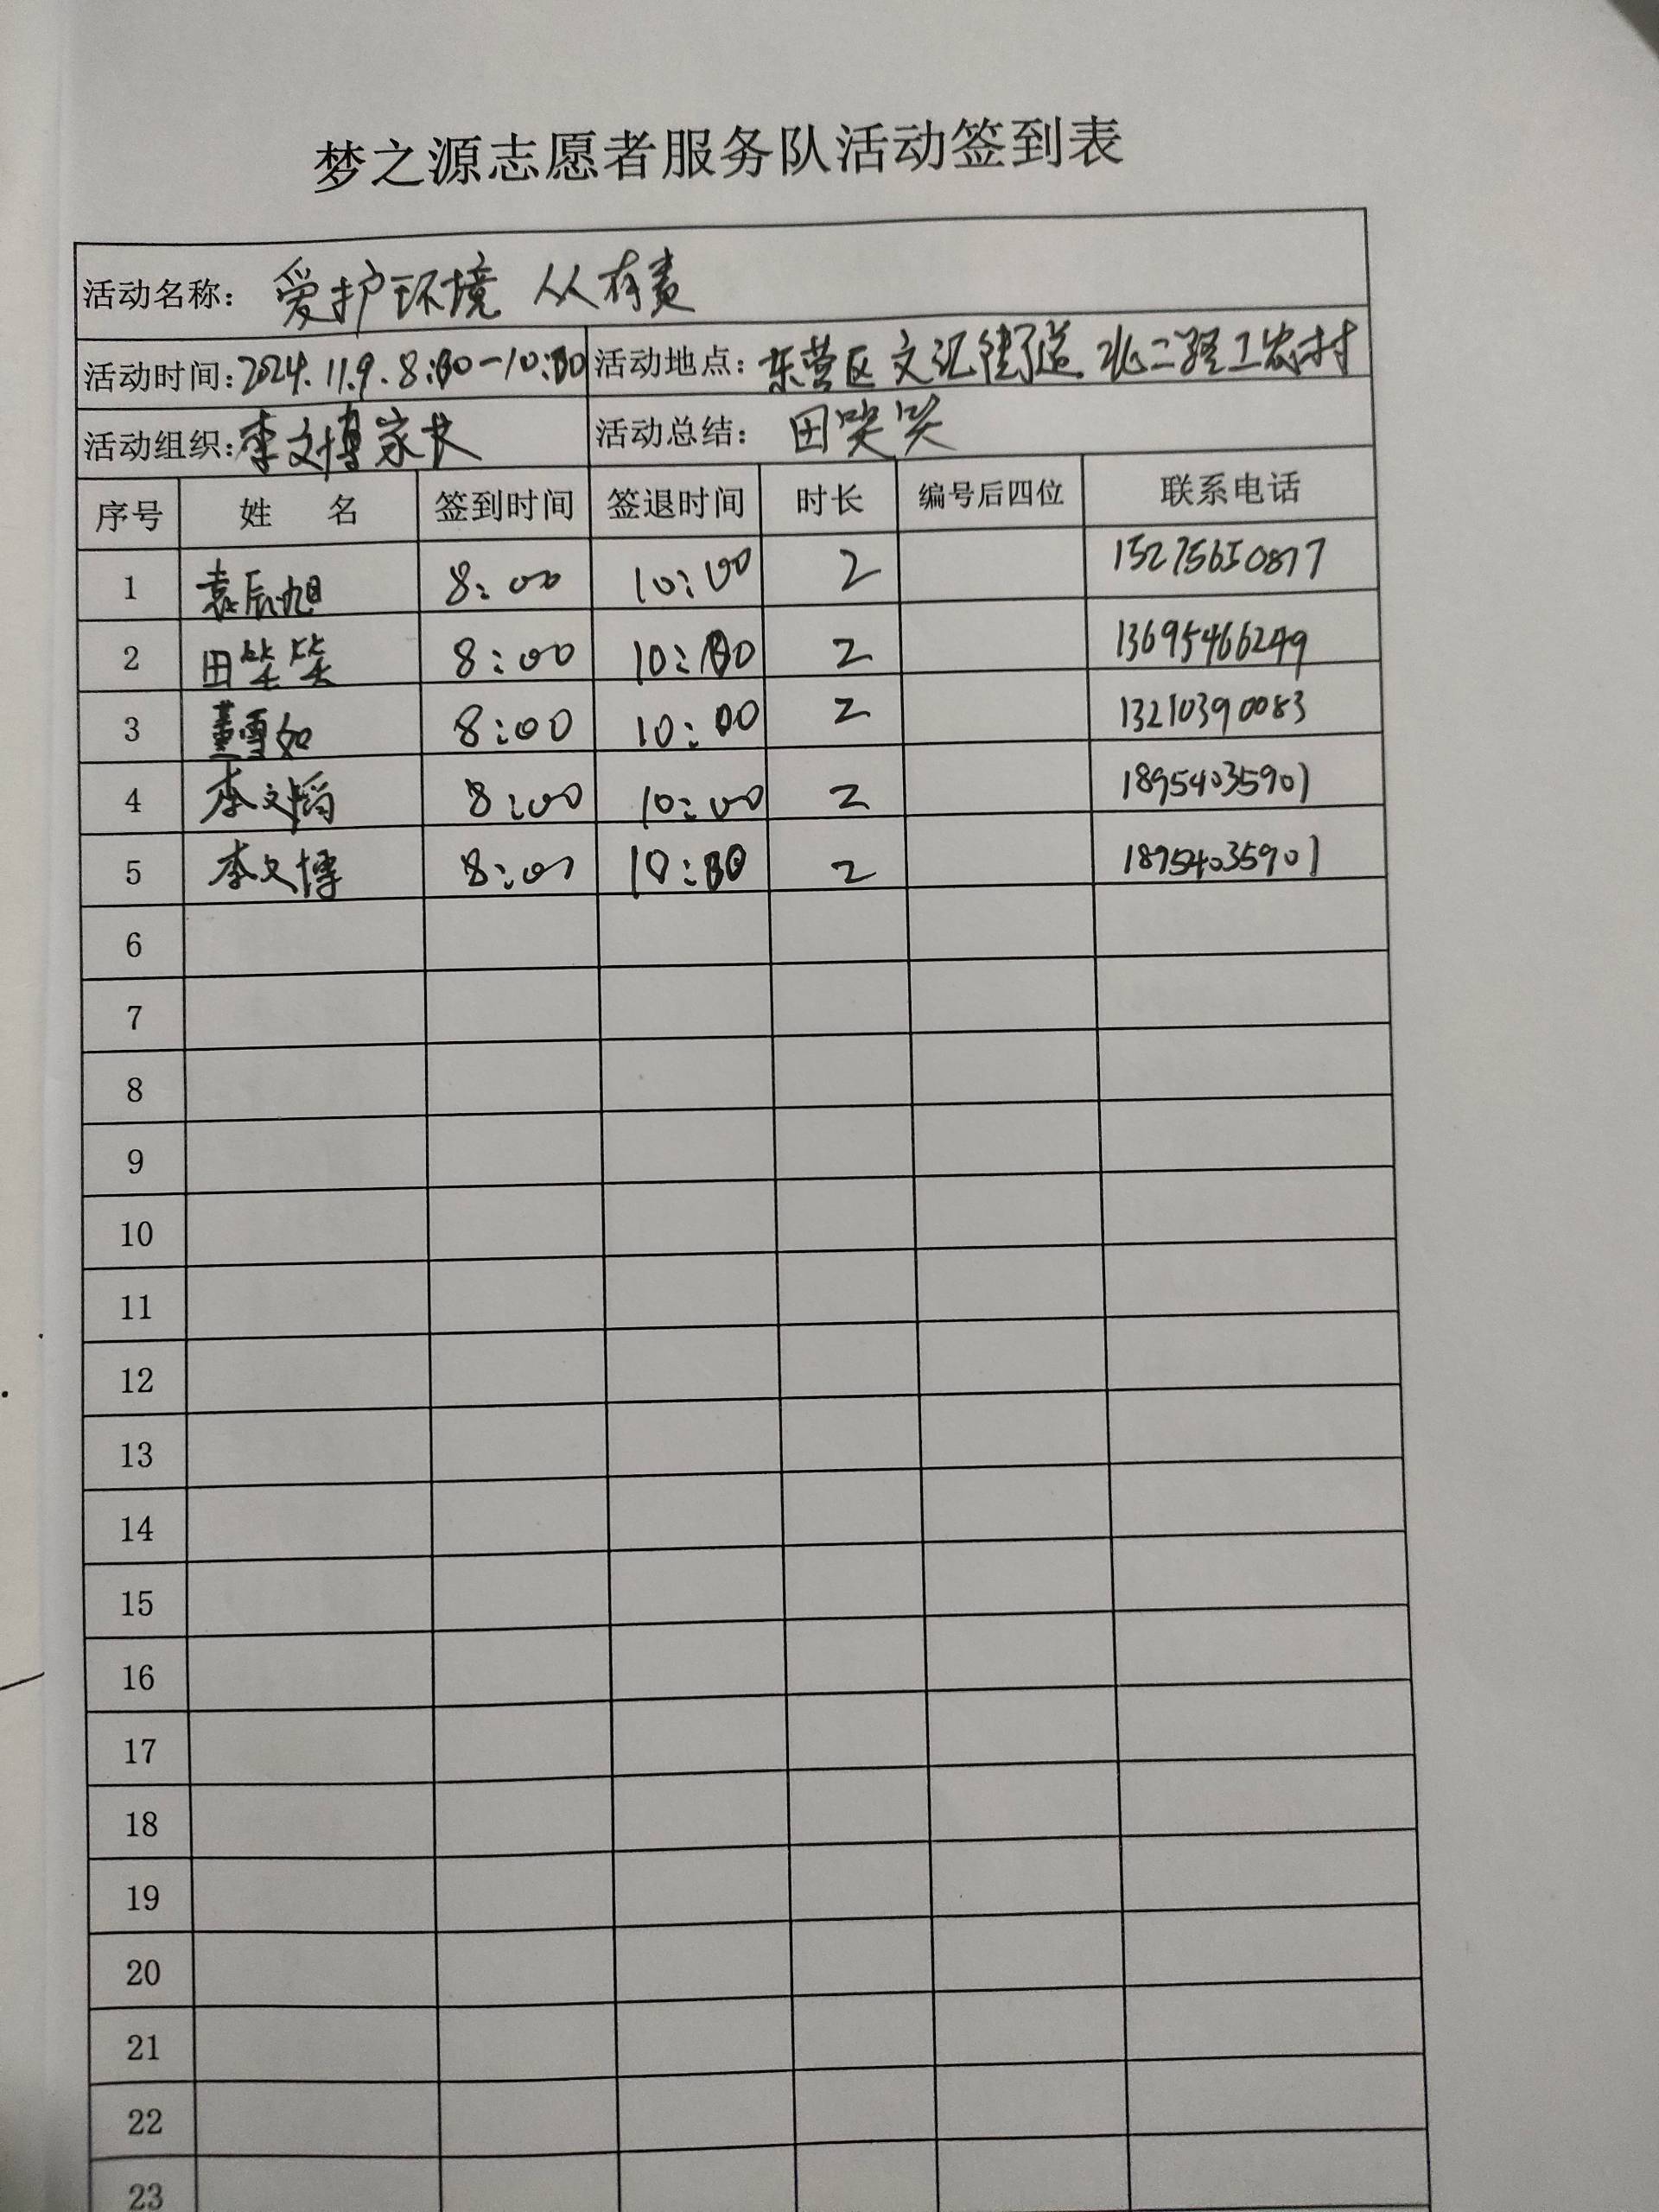 梦之源志愿者服务队活动签到表
活动名称：爱护环境 从有责
活动时间：2024.11.9.8:00-10:00 活动地点：东营区文汇街道北二路工农村
活动组织：李文博家长 活动总结：田笑笑
序号 姓 名 签到时间 签退时间 时长 编号后四位 联系电话
1 袁辰旭 8:00 10:00 2 15275650877
2 田笑笑 8:00 10:00 2 13695466249
3 董雪如 8:00 10:00 2 13210390083
4 李文韬 8:00 10:00 2 18954035901
5 李文博 8:00 10:00 2 18954035901
6
7
8
9
10
11
12
13
14
15
16
17
18
19
20
21
22
23